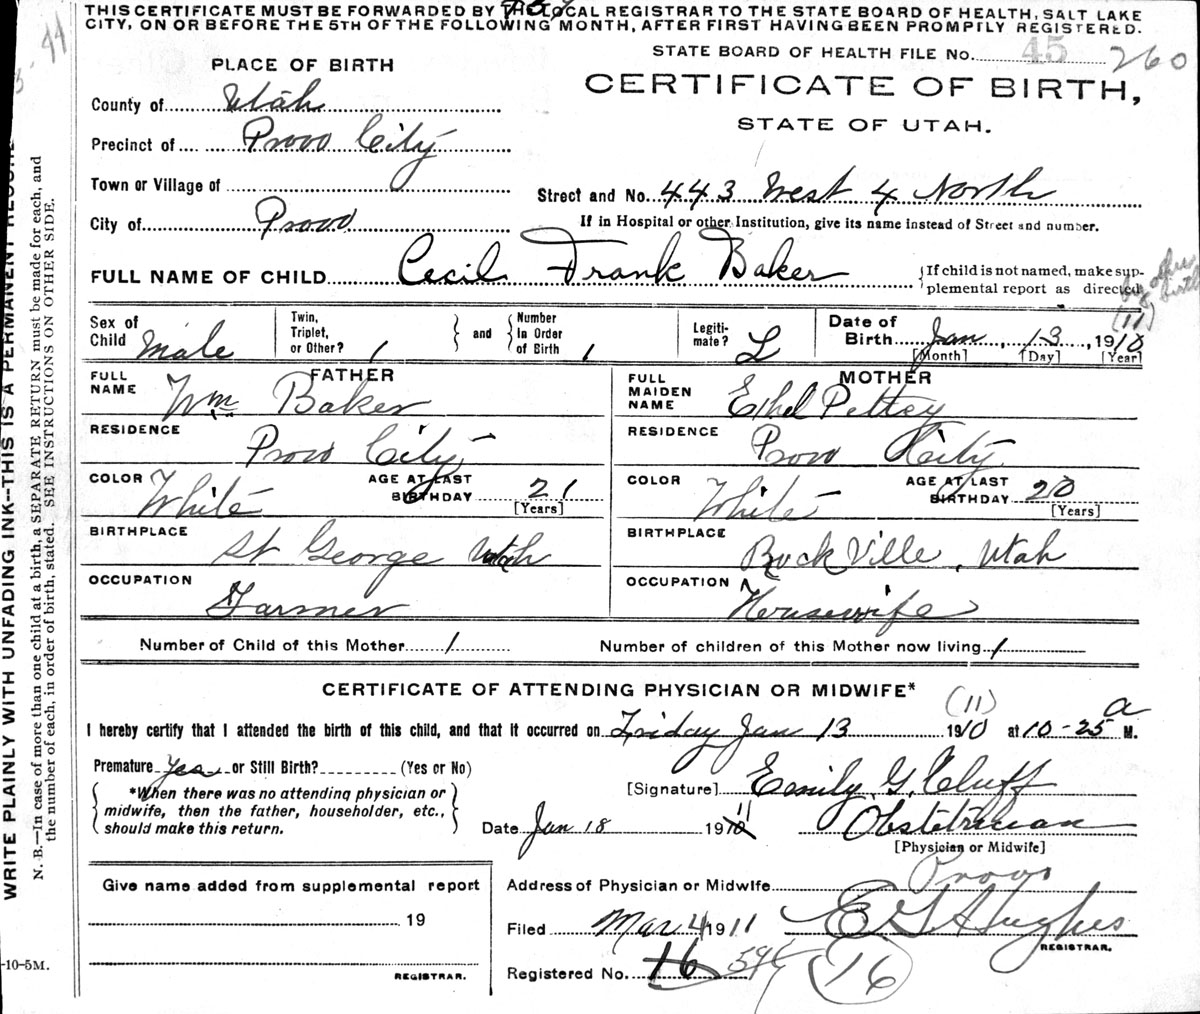 THIS CERTIFICATE MUST BE FORWARDED BY THE LOCAL REGISTRAR TO THE STATE BOARD OF HEALTH, SALT LAKE
CITY, ON OR BEFORE THE 5TH OF THE FOLLOWING MONTH, AFTER FIRST HAVING BEEN PROMPTLY REGISTERED.
STATE BOARD OF HEALTH FILE No. 45 260
PLACE OF BIRTH
CERTIFICATE OF BIRTH,
STATE OF UTAH.
County of Utah
Precinct of Provo City
Town or Village of
Street and No. 443 West 4 North
City of Provo
If in Hospital or other Institution, give its name instead of Street and number.
FULL NAME OF CHILD Cecil Frank Baker
If child is not named, make sup-
plemental report as directed
(11)
Sex of Child Male
Twin, Triplet, or Other? 1 and Number in Order of Birth 1
Legiti-mate? L
Date of Birth Jan, 13, 1910
[Month] [Day] [Year]
FATHER
FULL NAME Wm Baker
RESIDENCE Provo City
COLOR White AGE AT LAST BIRTHDAY 21 [Years]
BIRTHPLACE St George Utah
OCCUPATION Farmer
MOTHER
FULL MAIDEN NAME Ethel Pettey
RESIDENCE Provo City
COLOR White AGE AT LAST BIRTHDAY 20 [Years]
BIRTHPLACE Rock Ville, Utah
OCCUPATION Housewife
Number of Child of this Mother 1 Number of children of this Mother now living 1
CERTIFICATE OF ATTENDING PHYSICIAN OR MIDWIFE*
(11)
I hereby certify that I attended the birth of this child, and that it occurred on Friday Jan 13 1910 at 10-25 a M.
Premature Yes or Still Birth? (Yes or No)
*When there was no attending physician or
midwife, then the father, householder, etc.,
should make this return.
[Signature] Emily G. Cluff
Date Jan 18 1910 11 Obstetrician
[Physician or Midwife]
Give name added from supplemental report
19
REGISTRAR.
Address of Physician or Midwife Provo
Filed Mar 4 1911 E G Hughes
REGISTRAR.
Registered No. 16 16
WRITE PLAINLY WITH UNFADING INK--THIS IS A PERMANENT RECORD
N. B.—In case of more than one child at a birth, a SEPARATE RETURN must be made for each, and
the number of each, in order of birth, stated. SEE INSTRUCTIONS ON OTHER SIDE.
-10-5M.